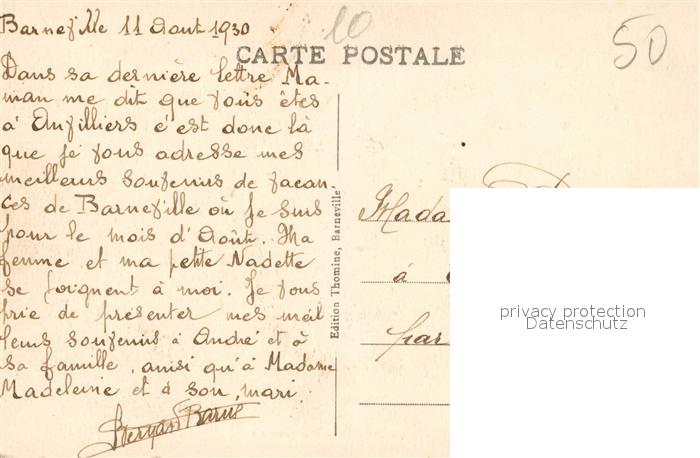 Barneville 11 Aout 1930
10
50
CARTE POSTALE
Dans sa dernière lettre Ma-
man me dit que vous êtes
à Anvilliers c'est donc là
que je vous adresse mes
meilleurs souvenirs de vacan-
ces de Barneville où je suis
pour le mois d'Août. Ma
femme et ma petite Nadette
se joignent à moi. Je vous
prie de presenter mes meil
leurs souvenirs à André et à
sa famille, ainsi qu'à Madame
Madeleine et à son mari.
Edition Thomine, Barneville
Mada
à
par
privacy protection
Datenschutz